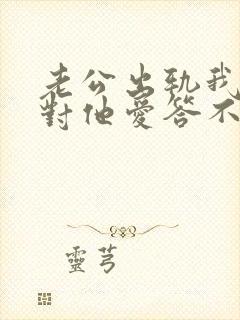 老公出軌我
對他愛答不
靈芎